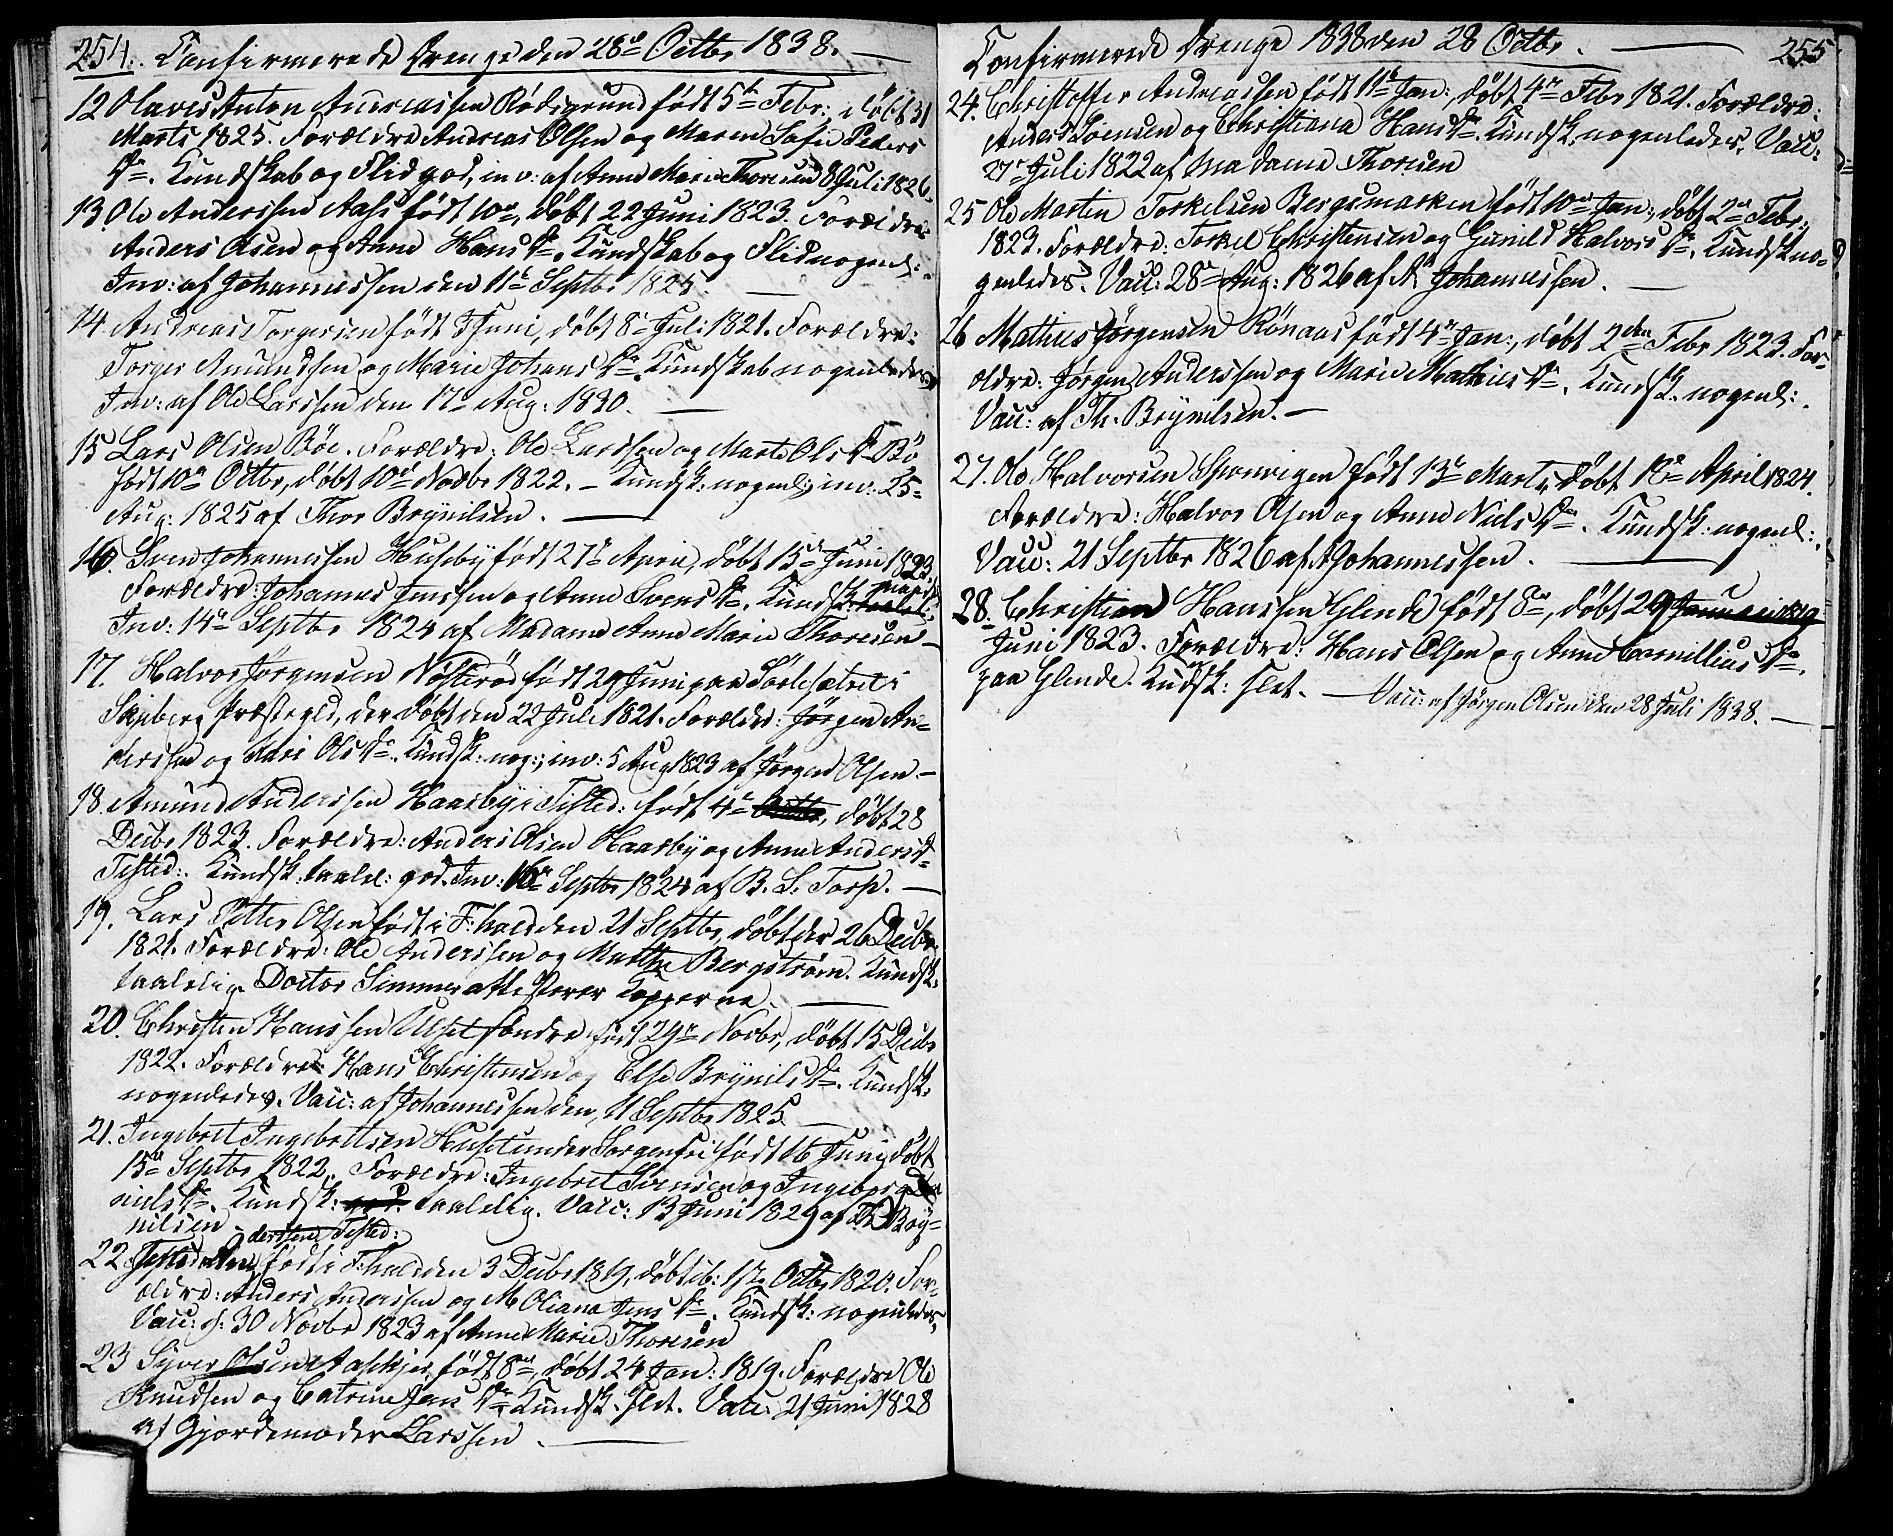 254. Confirmerede Drenge den 28de Octbr 1838. —
12 Olaves Anton Andreassen Rødsgrund født 5te Febr:, døbt 31
Marts 1825. Forældre Andreas Olsen og Maren Sofie Peders
Dr. Kundskab og Flid god, inv: af Anne Marie Thoresen 8 Juli 1826.
13. Ole Anderssen Aass født 10de, døbt 22 Juni 1823. Forældre
Anders Olsen og Anne Hans Dr. Kundskab og Flid nogenl:.
Inv: af Johannessen den 11te Septbr 1825. —
14. Andreas Torgersen født Juni, døbt 8de Juli 1821. Forældre:
Torger Amundsen og Marie Johans Dr. Kundskab nogenledes
Inv: af Ole Larssen den 17de Aug: 1830. —
15 Lars Olsen Bøe. Forældre: Ole Larssen og Marte Ols Dr Bø
født 10de Octbr, døbt 10de Novbr 1822. – Kundsk: nogenl:, inv: 25
Aug: 1825 af Thor Brynilsen. —
16. Sven Johannessen Huseby født 27de April, døbt 15de Juni 1823.
Forældre: Johannes Jenssen og Anne Svens Dr. Kundsk:
Inv: 14de Septbr 1824 af Madame Anne Marie Thoresen –
17. Halvor Jørgensen Nøsterød født 29 Juni paa i
Skjeberg Præstegld, der døbt den 22 Juli 1821. Forældre: Jørgen An-
derssen og Kari Ols Dr. Kundsk: nog:, inv: 5 Aug 1823 af Jørgen Olsen –
18. Amund Anderssen Haasbye Tisted: født 4de Octbr, døbt 28
Decbr 1823. Forældre: Anders Olsen Haasby og Anne Anders D.
Tisted:. Kundsk: taalel: god. Inv: 16de Septbr 1824 af B. S. Torp. —
19. Lars Petter Olsen født i F:hald den 21 Septbr, døbt der 26 Decbr
1821. Forældre: Ole Anderssen og Marthe Bergstrøm. Kundsk:
taalelig. Doctor Simmer attesterer Kopperne. —
20. Christen Hanssen Ulset søndre født 29de Novbr, døbt 15 Decbr
1822. Forældre Hans Christensen og Else Brynils Dr. Kundsk:
nogenledes. Vacc: af Johannessen den 11 Septbr 1825. —
21. Ingebret Ingebrettsen Huset under Sorgenfri født 16 Juni, døbt
15de Septbr 1822. Forældre: Ingebret Svensen og Ingeborg
niels Dr. Kundsk: god. taalelig. Vacc: 13 Juni 1829 af Th Bry-
nilsen
derssen Tisted:
22 født i F:hald den 3 Decbr 1819, døbt ib: 17de Octbr 1820. For-
ældre: Anders Anderssen og M Oliana Jens Dr. Kundsk: nogenledes,
Vacc: d: 30 Novbr 1823 af Anne Marie Thoresen
23 Syver Olsen Aaskjer født 8de, døbt 24 Jan: 1819. Forældre Ole
Knudsen og Catrine Jens Dr. Kundsk: slet. Vacc: 21 Juni 1828
af Gjordemoder Larssen. —
Confirmerede Drenge 1838 den 28 Octbr. — 255
24. Christoffer Andreassen født 11te Jan:, døbt 4de Febr 1821. Forældre:
Anders Sørensen og Christiana Hans Dr. Kundsk: nogenledes. Vacc:
27de Juli 1822 af Madame Thoresen
25 Ole Martin Torkelsen Bergsmarken født 10de Jan:, døbt 2den Febr:
1823. Forældre: Torkel Christensen og Gunild Halvors Dr. Kundsk no-
genledes. Vacc: 28de Aug: 1826 af A Johannessen. —
26 Mathies Jørgensen Rønaas født 4de Jan:, døbt 2den Febr 1823. For-
ældre: Jørgen Anderssen og Marie Mathies Dr. Kundsk: nogenl:.
Vacc: af Th. Brynilsen. —
27. Ole Halvorsen Sponvigen født 13de Marts, døbt 18de April 1824.
Forældre: Halvor Olsen og Anne Niels Dr. Kundsk: nogenl:.
Vacc: 21 Septbr 1826 af A Johannessen. —
28. Christian Hanssen Glende født 8de, døbt 29 Januari 1819
Juni 1823. Forældre: Hans Olsen og Anne Cornillius Dr.
paa Glende. Kundsk: slet. — Vacc: af Jørgen Olsen den 28 Juli 1838. —